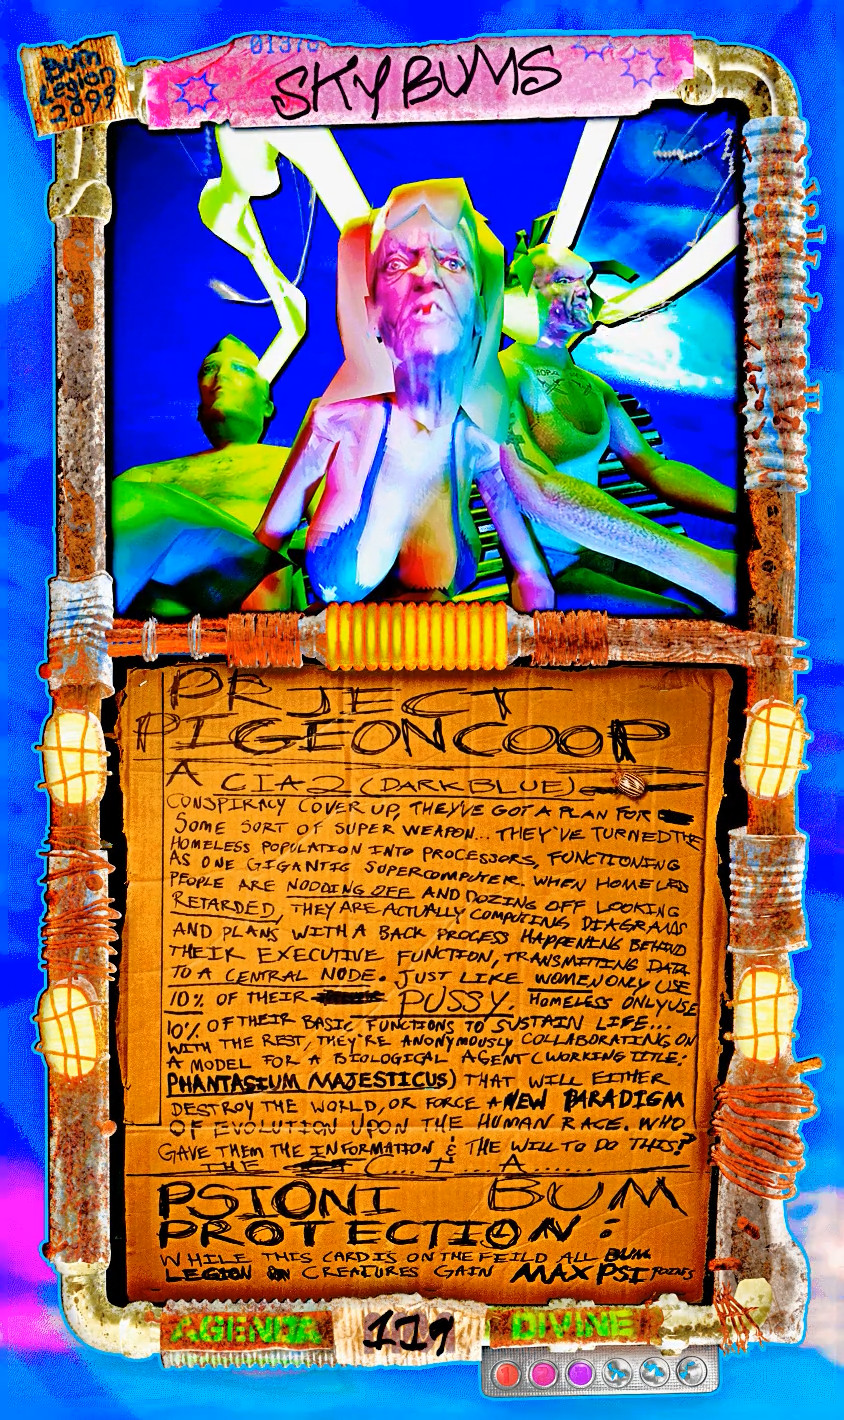 01376
Bum
Legion
2099
SKY BUMS
PRJECT
PIGEONCOOP
A CIA2 (DARK BLUE)
CONSPIRACY COVER UP, THEY'VE GOT A PLAN FOR
SOME SORT OF SUPER WEAPON... THEY'VE TURNED THE
HOMELESS POPULATION INTO PROCESSORS, FUNCTIONING
AS ONE GIGANTIC SUPERCOMPUTER. WHEN HOMELESS
PEOPLE ARE NODDING OFF AND DOZING OFF LOOKING
RETARDED, THEY ARE ACTUALLY COMPUTING DIAGRAMS
AND PLANS WITH A BACK PROCESS HAPPENING BEHIND
THEIR EXECUTIVE FUNCTION, TRANSMITTING DATA
TO A CENTRAL NODE. JUST LIKE WOMEN ONLY USE
10% OF THEIR PUSSY. HOMELESS ONLY USE
10% OF THEIR BASIC FUNCTIONS TO SUSTAIN LIFE...
WITH THE REST, THEY'RE ANONYMOUSLY COLLABORATING ON
A MODEL FOR A BIOLOGICAL AGENT (WORKING TITLE:
PHANTASIUM MAJESTICUS) THAT WILL EITHER
DESTROY THE WORLD, OR FORCE A NEW PARADIGM
OF EVOLUTION UPON THE HUMAN RACE. WHO
GAVE THEM THE INFORMATION & THE WILL TO DO THIS?
THE C... I... A......
PSIONI BUM
PROTECTION:
WHILE THIS CARD IS ON THE FEILD ALL BUM
LEGION CREATURES GAIN MAX PSI POINTS
AGENDA 119 DIVINE